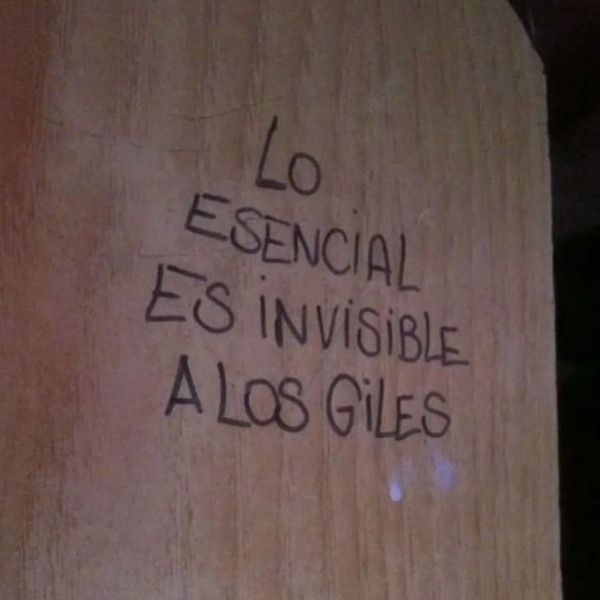 LO
ESENCIAL
ES INVISIBLE
A LOS GILES